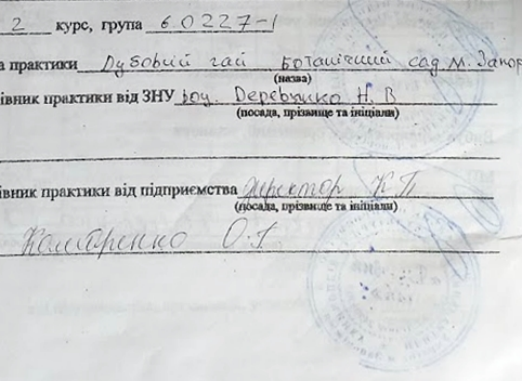 2 курс, група 6.0227-1
а практики Дубовий гай Ботанічний сад м. Запор
(назва)
івник практики від ЗНУ доц. Деревянко Н. В
(посада, прізвище та ініціали)
івник практики від підприємства директор КП
(посада, прізвище та ініціали)
О.Г